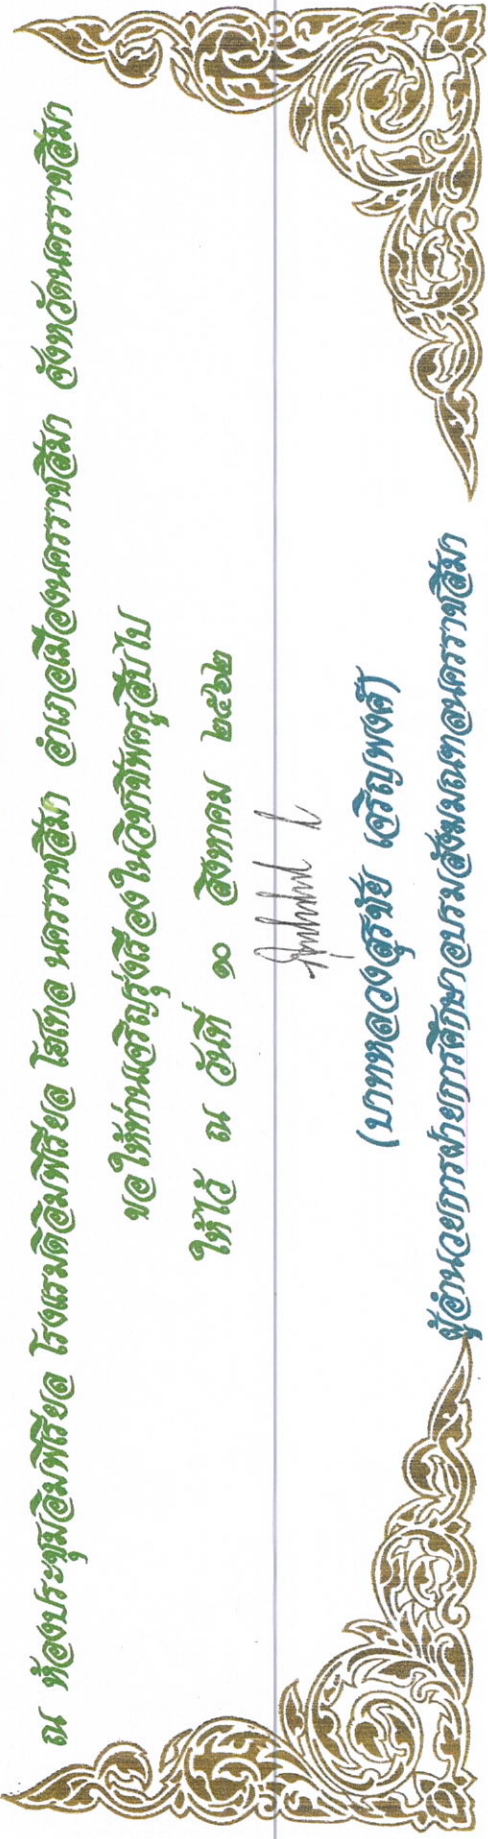 ณ ห้องประชุมอิมพีเรียล โรงแรมดิอิมพีเรียล โฮเทล นครราชสีมา อำเภอเมืองนครราชสีมา จังหวัดนครราชสีมา
ขอให้ท่านเจริญรุ่งเรืองในวิชาชีพครูสืบไป
ให้ไว้ ณ วันที่ ๑๐ สิงหาคม ๒๕๖๒
(บาทหลวงสุรชัย เจริญพงศ์)
ผู้อำนวยการฝ่ายการศึกษาอบรมสังฆมณฑลนครราชสีมา